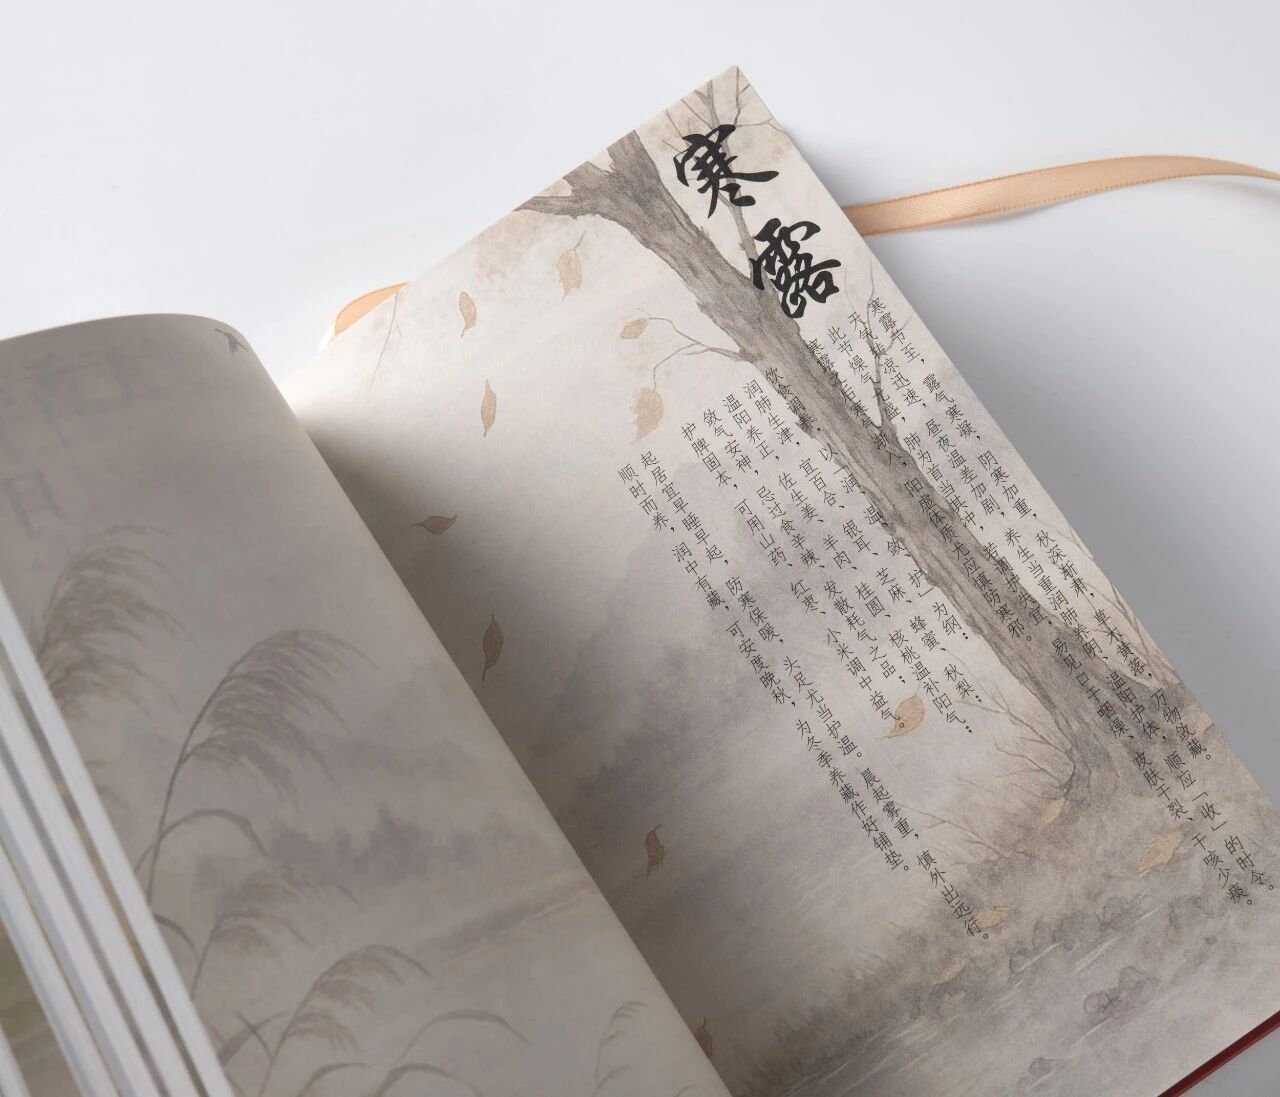 寒露
寒露节至，露气寒凝，阴寒加重，秋深渐肃，草木黄落，万物敛藏。
天气转凉迅速，昼夜温差加剧，养生当重润肺养阴、温阳护体，顺应「收」的时令。
此节燥气尤盛，肺为首当其冲，若调护失宜，易见口干咽燥、皮肤干裂、干咳少痰。
寒露之后寒气渐入，阳虚体质尤应慎防寒邪。
饮食调养，以「润、温、敛、护」为纲：
润肺生津，宜百合、银耳、芝麻、蜂蜜、秋梨；
温阳养正，佐生姜、羊肉、桂圆、核桃温补阳气；
敛气安神，忌过食辛辣、发散耗气之品；
护脾固本，可用山药、红枣、小米调中益气。
起居宜早睡早起，防寒保暖，头足尤当护温。晨起雾重，慎外出远行。
顺时而养，润中有藏，可安度晚秋，为冬季养藏作好铺垫。